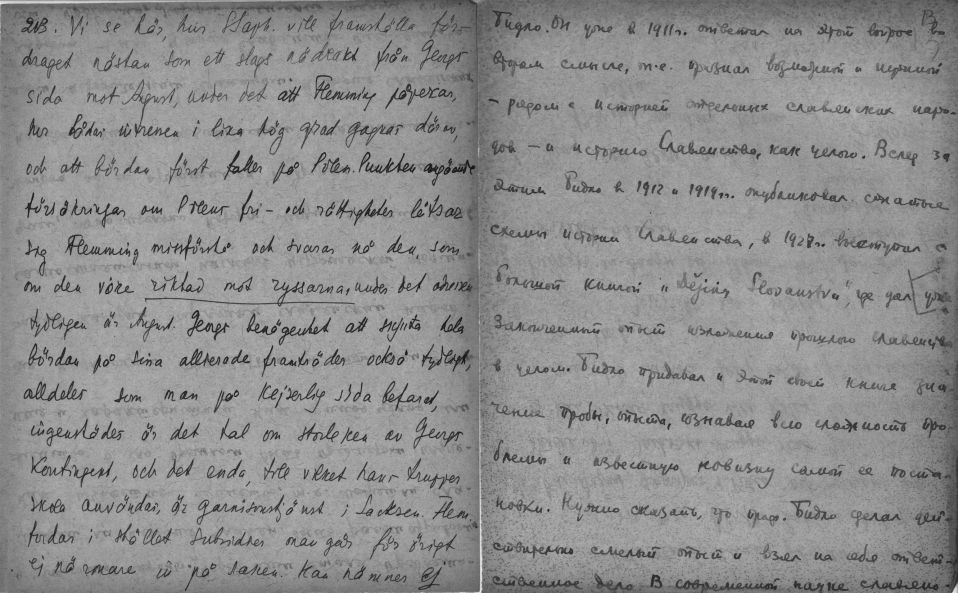 213. Vi se här, hur Staph. vill framhålla för-
draget nästan som ett slags nådeakt från Georgs
sida mot August, under det att Flemming påpekar,
hur båda i lika hög grad gagnas därav,
och att bördan först faller på Polen. Punkten angående
försäkringar om Polens fri- och rättigheter låtsas
sig Flemming missförstå och svarar på den, som
om den vore riktad mot ryssarna, under det adressen
tydligen är August. Georgs benägenhet att skjuta hela
bördan på sina allierade framträder också tydligt,
alldeles som man på Kejserlig sida befarat,
ingenstädes är det tal om storleken av Georgs
Kontingent, och det enda, till vilket hans trupper
skola användas, är garnisonstjänst i Sacksen. Flem.
fordar i stället subsidier men går för övrigt
ej närmare in på saken. Han nämner ej
Бидло. Он уже в 1911 г. ответил на этот вопрос во
втором смысле, т.е. признал возможной и нужной
– рядом с историей отдельных славянских наро-
дов – и историю Славянства, как целого. Вслед за
этим Бидло в 1912 и 1914 гг. опубликовал статьи
схемы истории Славянства, в 1927 г. выступил с
большой книгой „Dějiny Slovanstva", где дал уже
законченный опыт изложения прошлого славянства
в целом. Бидло придавал и этой своей книге зна-
чение пробы, опыта, сознавая всю сложность про-
блемы и известную новизну самой ее поста-
новки. Нужно сказать, что проф. Бидло сделал дей-
ствительно смелый опыт и взял на себя ответ-
ственное дело. В современной науке славяно-